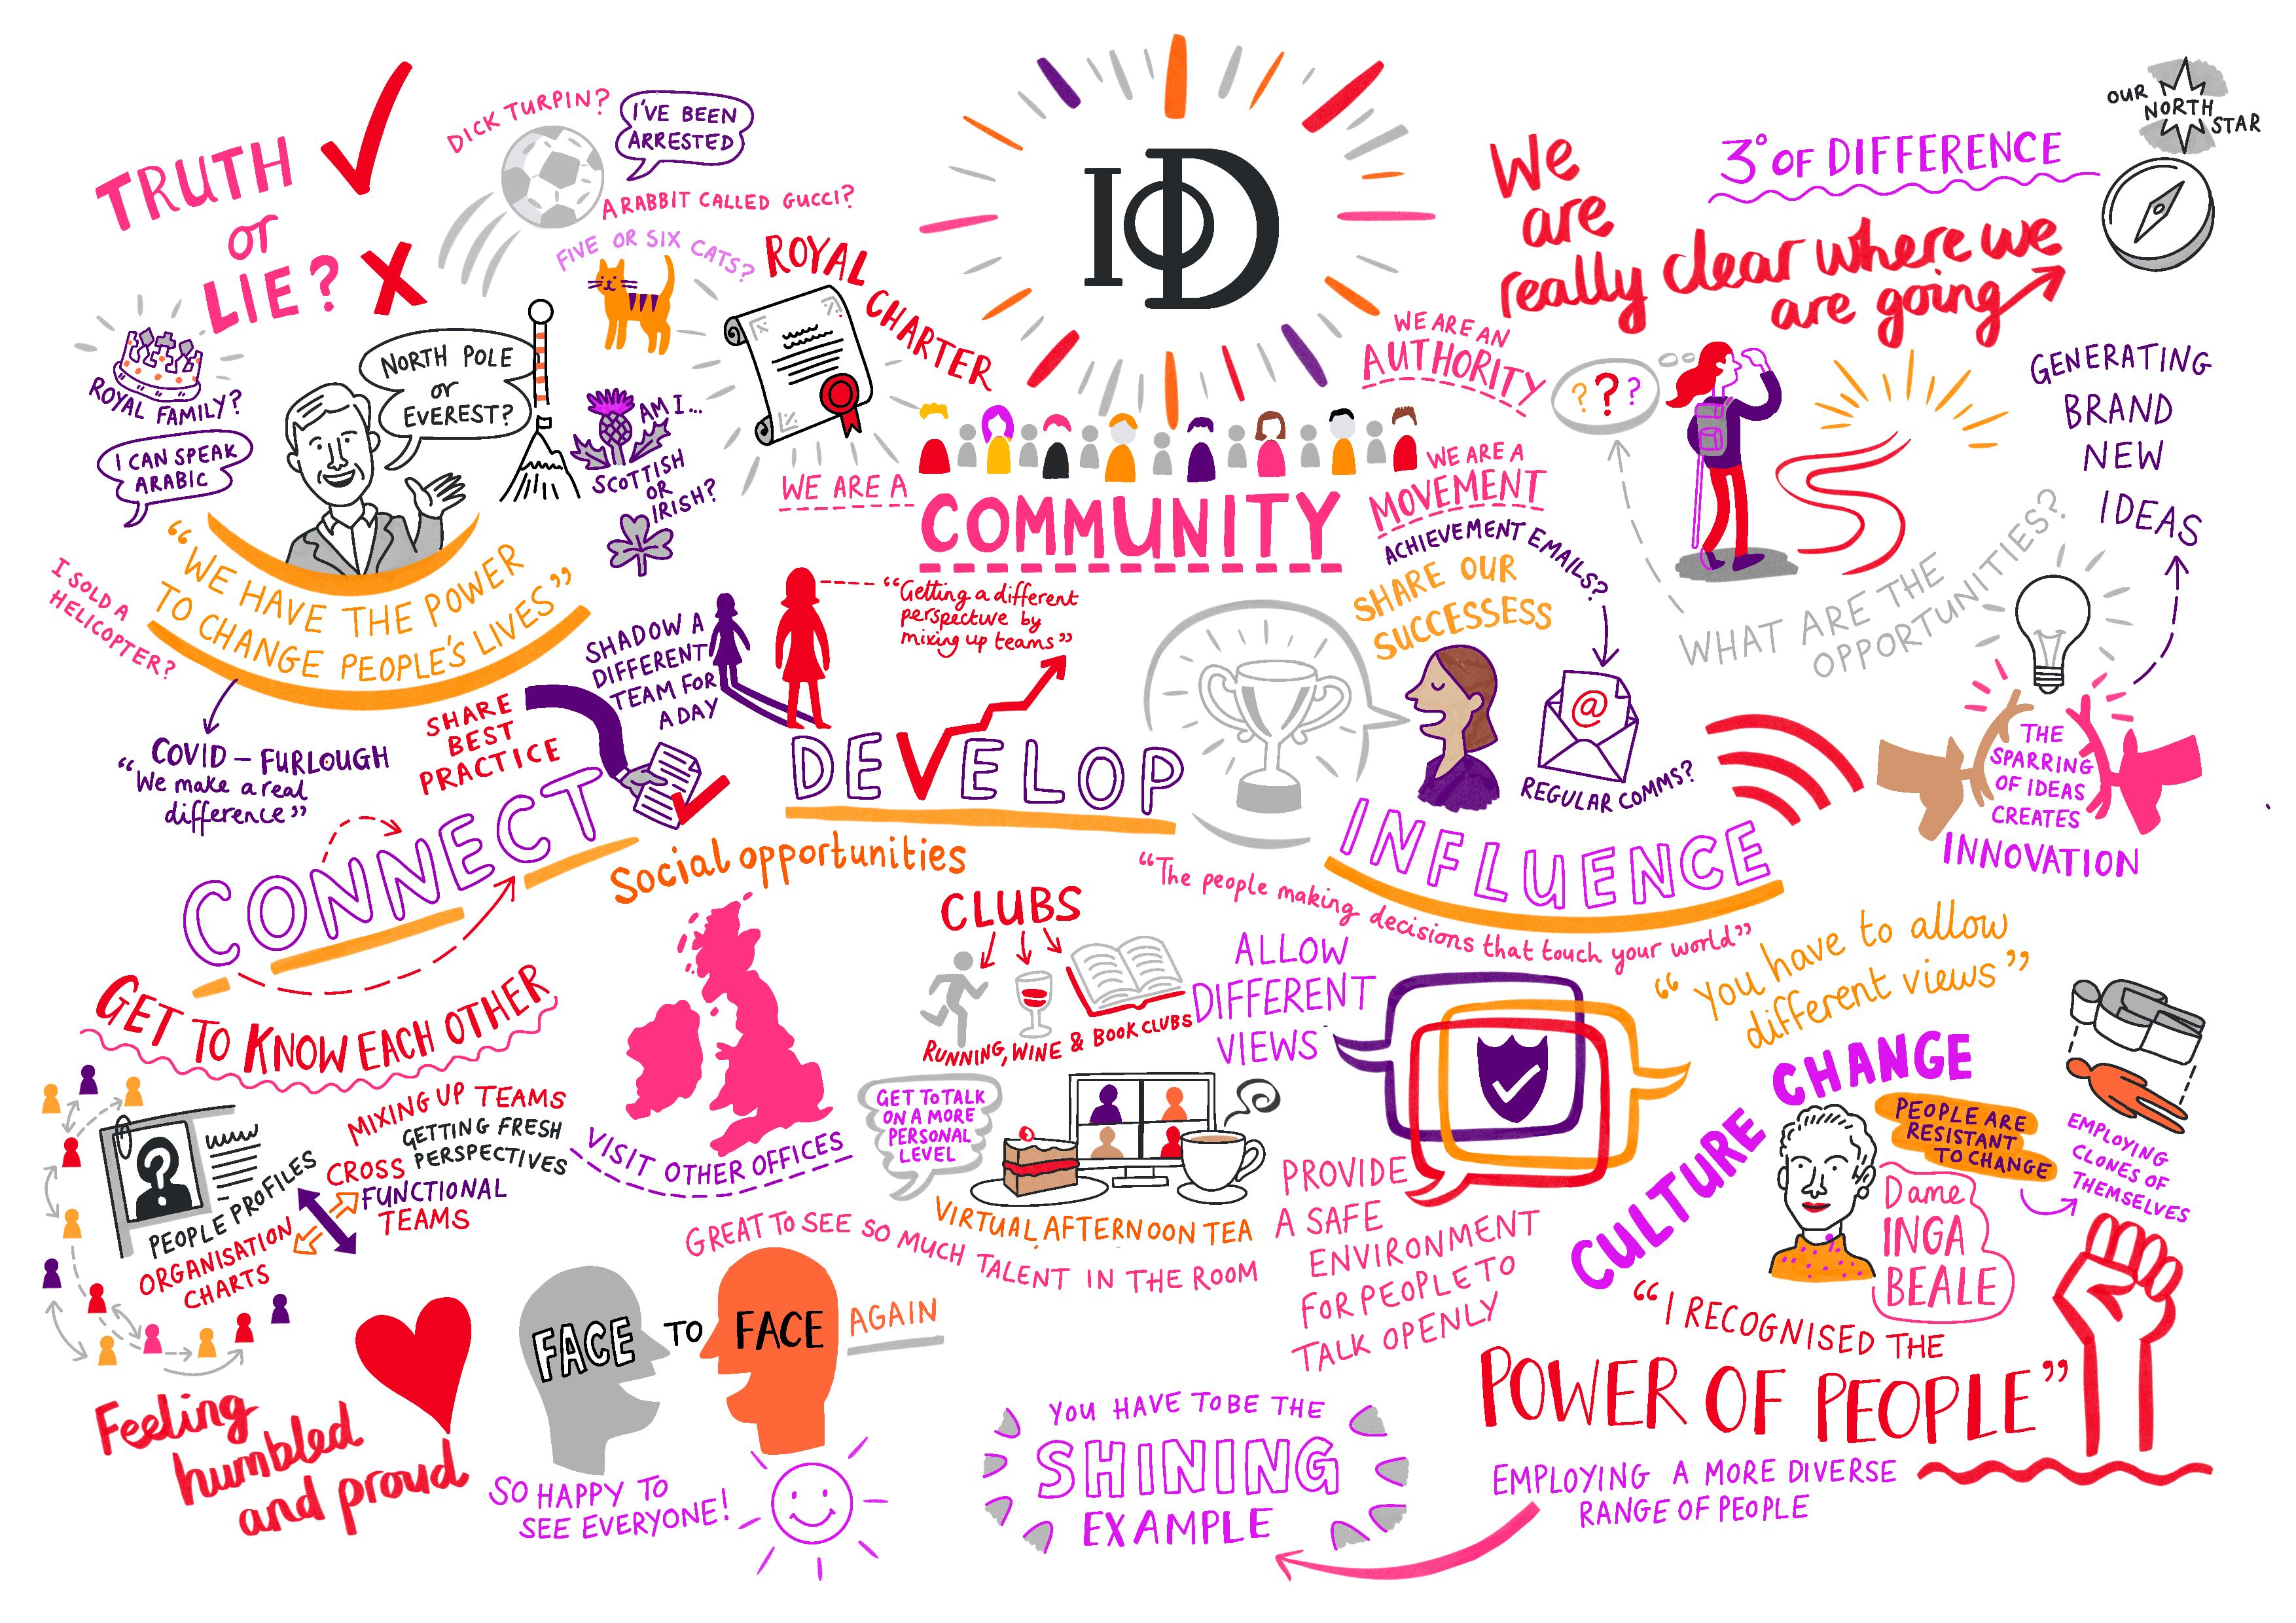 TRUTH
or
LIE?
DICK TURPIN?
I'VE BEEN
ARRESTED
A RABBIT CALLED GUCCI?
FIVE OR SIX CATS?
ROYAL FAMILY?
I CAN SPEAK
ARABIC
NORTH POLE
or
EVEREST?
AM I...
SCOTTISH
OR
IRISH?
"WE HAVE THE POWER
TO CHANGE PEOPLE'S LIVES"
I SOLD A
HELICOPTER?
COVID – FURLOUGH
"We make a real
difference"
ROYAL
CHARTER
IOD
WE ARE A
COMMUNITY
WE ARE AN
AUTHORITY
WE ARE A
MOVEMENT
We
are
really clear where we
are going
3° OF DIFFERENCE
OUR
NORTH
STAR
? ? ?
WHAT ARE THE
OPPORTUNITIES?
GENERATING
BRAND
NEW
IDEAS
THE
SPARRING
OF IDEAS
CREATES
INNOVATION
ACHIEVEMENT EMAILS?
SHARE OUR
SUCCESSESS
@
REGULAR COMMS?
INFLUENCE
"The people making decisions that touch your world"
SHADOW A
DIFFERENT
TEAM FOR
A DAY
"Getting a different
perspective by
mixing up teams"
DEVELOP
SHARE
BEST
PRACTICE
CONNECT
Social opportunities
GET TO KNOW EACH OTHER
?
PEOPLE PROFILES
ORGANISATION
CHARTS
MIXING UP TEAMS
GETTING FRESH
PERSPECTIVES
CROSS
FUNCTIONAL
TEAMS
VISIT OTHER OFFICES
CLUBS
RUNNING, WINE & BOOK CLUBS
GET TO TALK
ON A MORE
PERSONAL
LEVEL
VIRTUAL AFTERNOON TEA
ALLOW
DIFFERENT
VIEWS
"You have to allow
different views"
PROVIDE
A SAFE
ENVIRONMENT
FOR PEOPLE TO
TALK OPENLY
CULTURE CHANGE
PEOPLE ARE
RESISTANT
TO CHANGE
EMPLOYING
CLONES OF
THEMSELVES
Dame
INGA
BEALE
"I RECOGNISED THE
POWER OF PEOPLE"
EMPLOYING A MORE DIVERSE
RANGE OF PEOPLE
YOU HAVE TO BE THE
SHINING
EXAMPLE
GREAT TO SEE SO MUCH TALENT IN THE ROOM
FACE TO FACE AGAIN
SO HAPPY TO
SEE EVERYONE!
Feeling
humbled
and proud